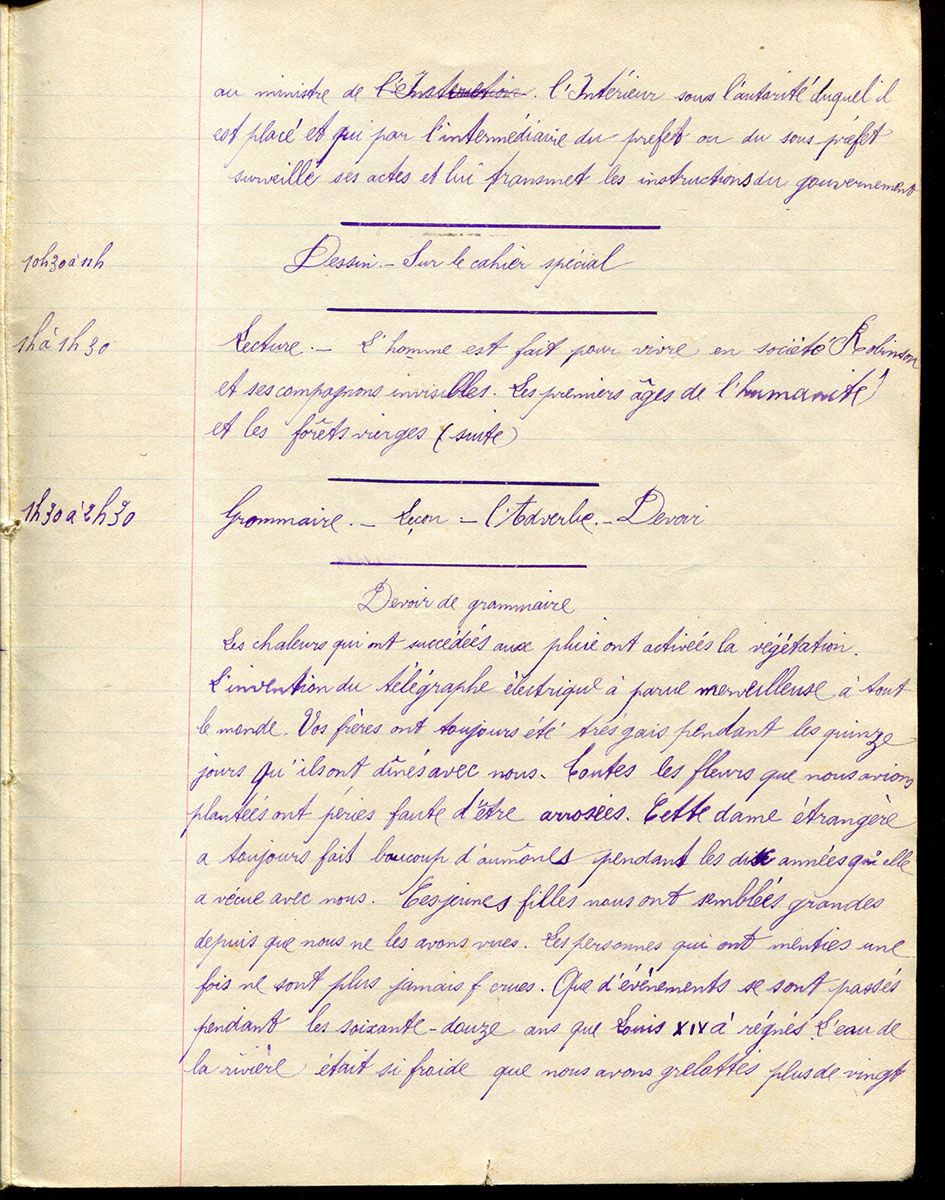 au ministre de l'Instruction. l'Intérieur sous l'autorité duquel il
est placé et qui par l'intermédiaire du préfet ou du sous préfet
surveille ses actes et lui transmet les instructions du gouvernement
10h30 à 11h Dessin. - Sur le cahier spécial
1h à 1h30 Lecture. - L'homme est fait pour vivre en société Robinson
et ses compagnons invisibles. Les premiers âges de l'humanité
et les forêts vierges (suite)
1h30 à 2h30 Grammaire. - Leçon = l'Adverbe. - Devoir
Devoir de grammaire
Les chaleurs qui ont succédées aux pluie ont activées la végétation.
L'invention du télégraphe électrique à parue merveilleuse à tout
le monde. Vos frères ont toujours été très gais pendant les quinze
jours qu'ils ont dînés avec nous. Toutes les fleurs que nous avions
plantées ont péries faute d'être arrosées. Cette dame étrangère
a toujours fait baucoup d'aumônes pendant les dix années qu'elle
a vécue avec nous. Ces jeunes filles nous ont semblées grandes
depuis que nous ne les avons vues. Les personnes qui ont menties une
fois ne sont plus jamais crues. Que d'événements se sont passés
pendant les soixante-douze ans que Louis XIV à régnés. L'eau de
la rivière était si froide que nous avons grelottés plus de vingt